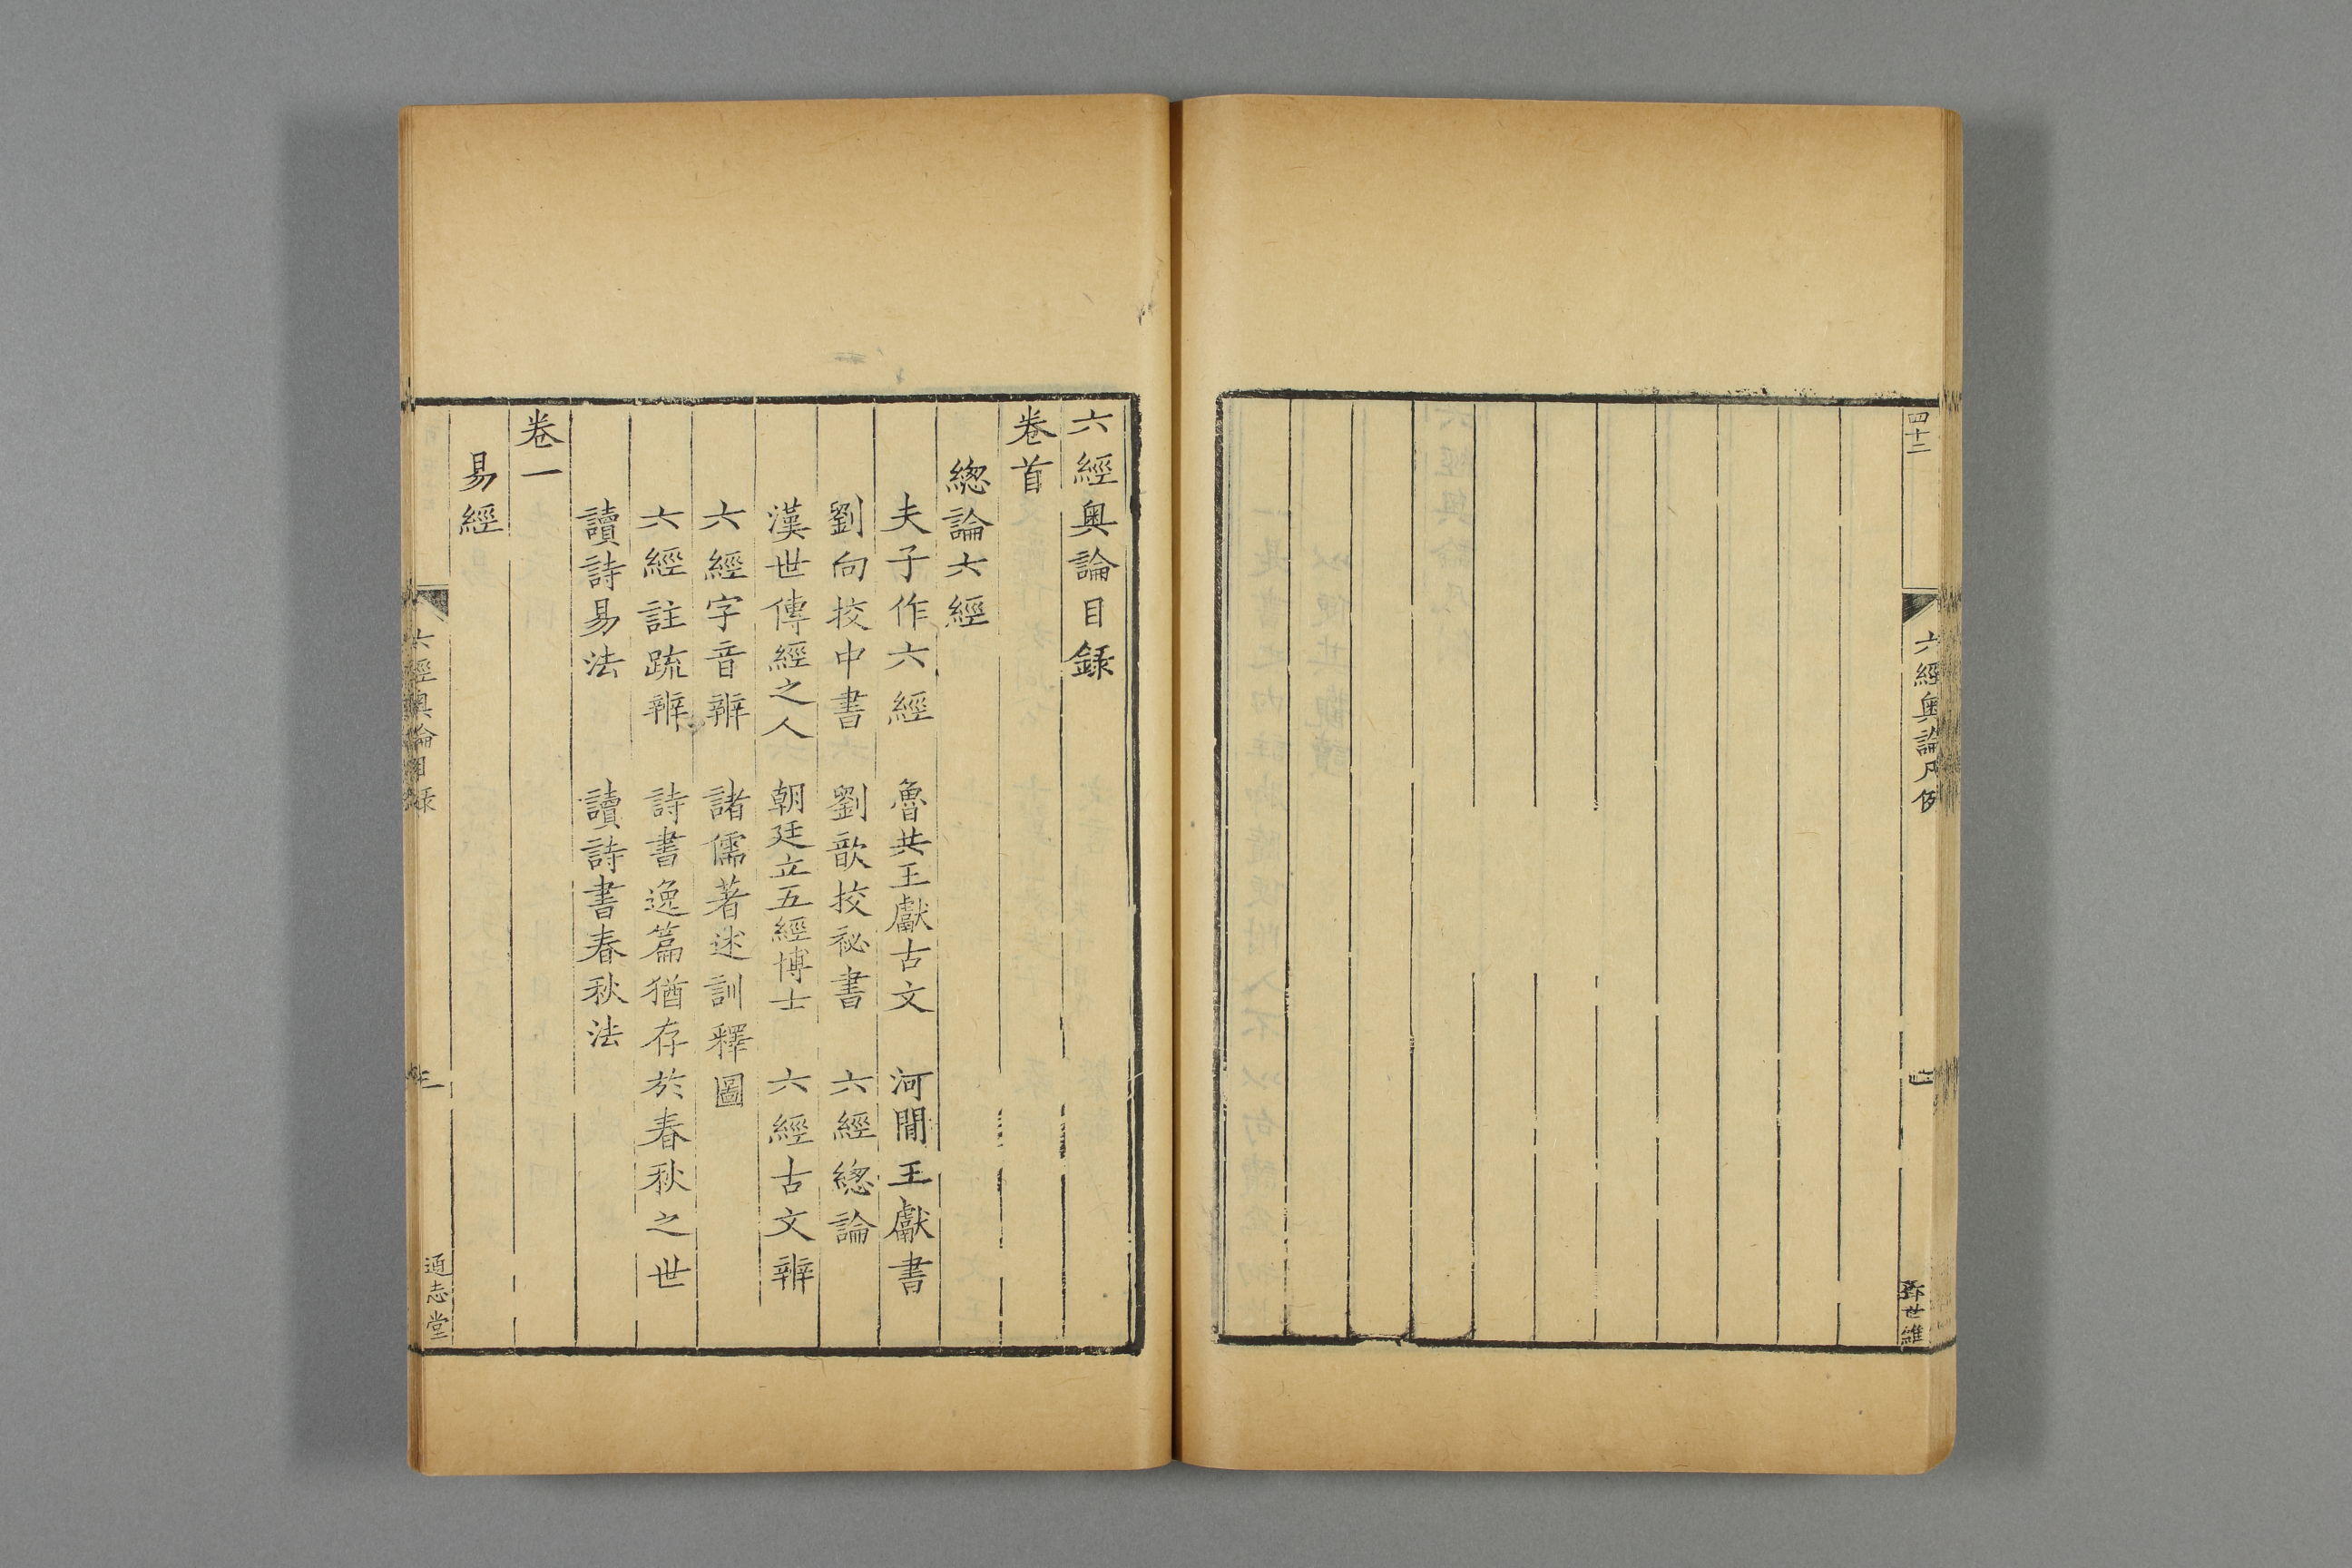 四十二
六經奧論凡例
鄧世維
六經奧論目録
卷首
緫論六經
夫子作六經 魯共王獻古文 河閒王獻書
劉向挍中書 劉歆挍祕書 六經緫論
漢世傳經之人 朝廷立五經博士 六經古文辨
六經字音辨 諸儒著述訓釋圖
六經註疏辨 詩書逸篇猶存於春秋之世
讀詩易法 讀詩書春秋法
卷一
易經
六經奧論目録
通志堂